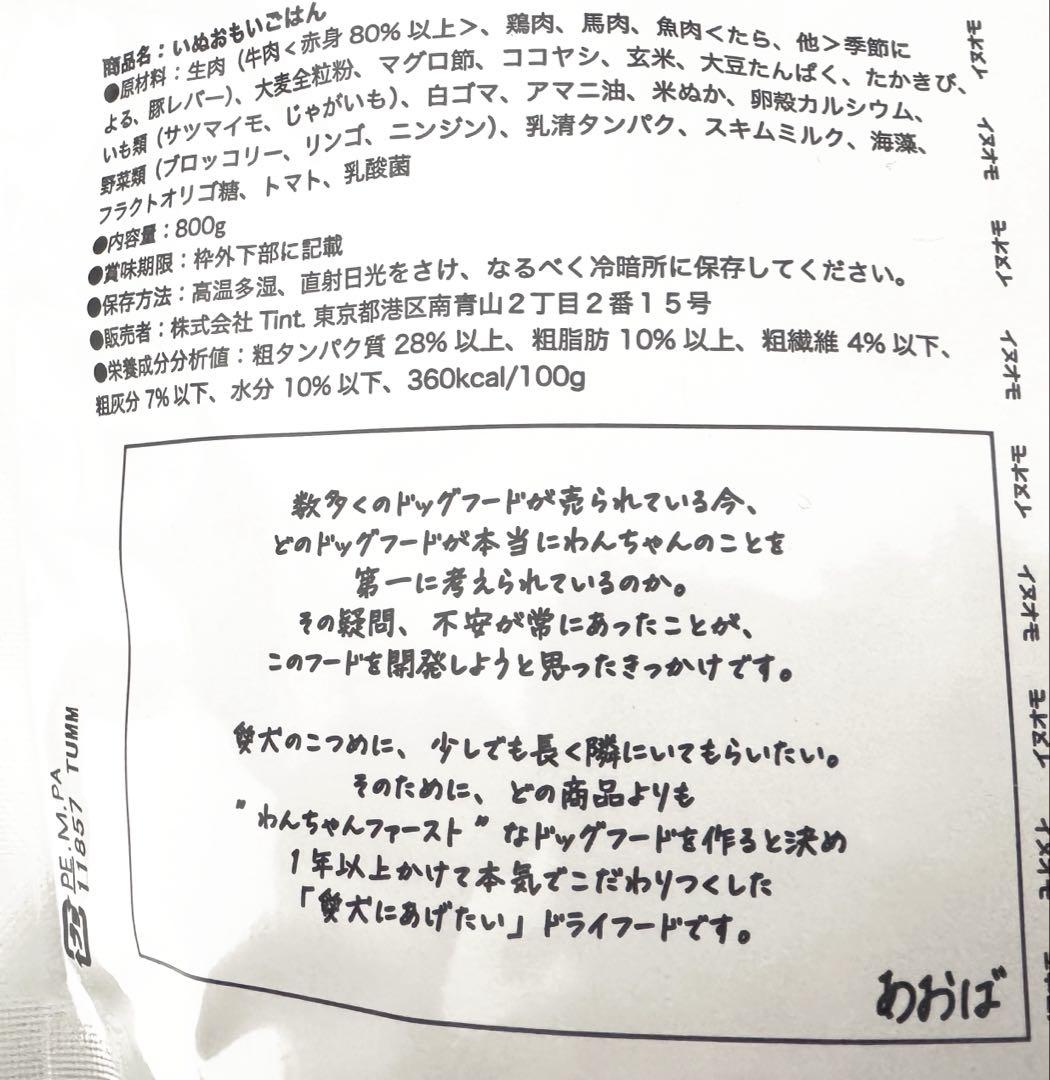 商品名：いぬおもいごはん
●原材料：生肉（牛肉＜赤身80%以上＞、鶏肉、馬肉、魚肉＜たら、他＞季節に
よる、豚レバー）、大麦全粒粉、マグロ節、ココヤシ、玄米、大豆たんぱく、たかきび、
いも類（サツマイモ、じゃがいも）、白ゴマ、アマニ油、米ぬか、卵殻カルシウム、
野菜類（ブロッコリー、リンゴ、ニンジン）、乳清タンパク、スキムミルク、海藻、
フラクトオリゴ糖、トマト、乳酸菌
●内容量：800g
●賞味期限：枠外下部に記載
●保存方法：高温多湿、直射日光をさけ、なるべく冷暗所に保存してください。
●販売者：株式会社 Tint. 東京都港区南青山２丁目２番１５号
●栄養成分分析値：粗タンパク質 28% 以上、粗脂肪 10% 以上、粗繊維 4% 以下、
粗灰分 7% 以下、水分 10% 以下、360kcal/100g
数多くのドッグフードが売られている今、
どのドッグフードが本当にわんちゃんのことを
第一に考えられているのか。
その疑問、不安が常にあったことが、
このフードを開発しようと思ったきっかけです。
愛犬のこつめに、少しでも長く隣にいてもらいたい。
そのために、どの商品よりも
"わんちゃんファースト"なドッグフードを作ると決め
1年以上かけて本気でこだわりつくした
「愛犬にあげたい」ドライフードです。
あおば
PE.M.PA
11857 TUMM
イヌオモ
イヌオモ
イヌオモ
イヌオモ
イヌオモ
イヌオモ
イヌオモ
イヌオモ